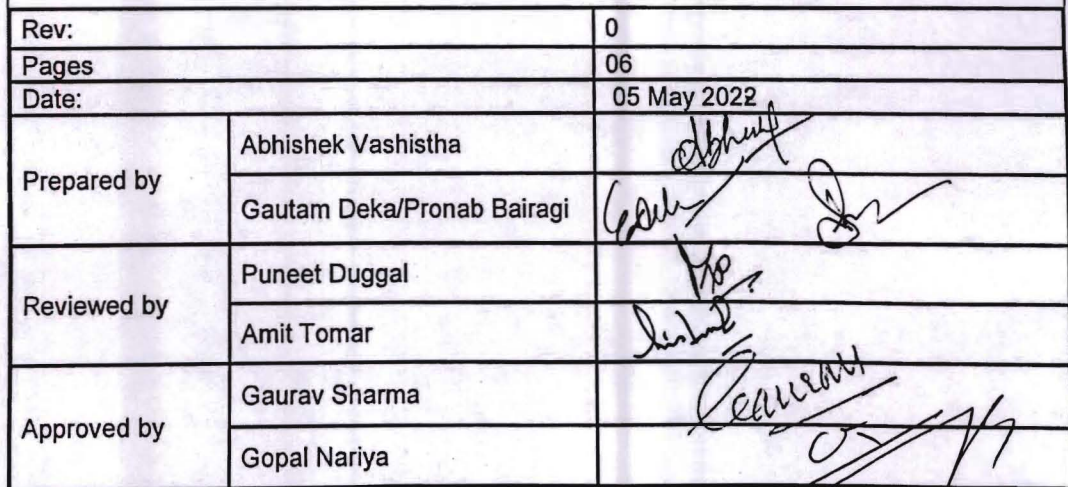 Rev: 0
Pages 06
Date: 05 May 2022
Prepared by
Abhishek Vashistha
Gautam Deka/Pronab Bairagi
Reviewed by
Puneet Duggal
Amit Tomar
Approved by
Gaurav Sharma
Gopal Nariya